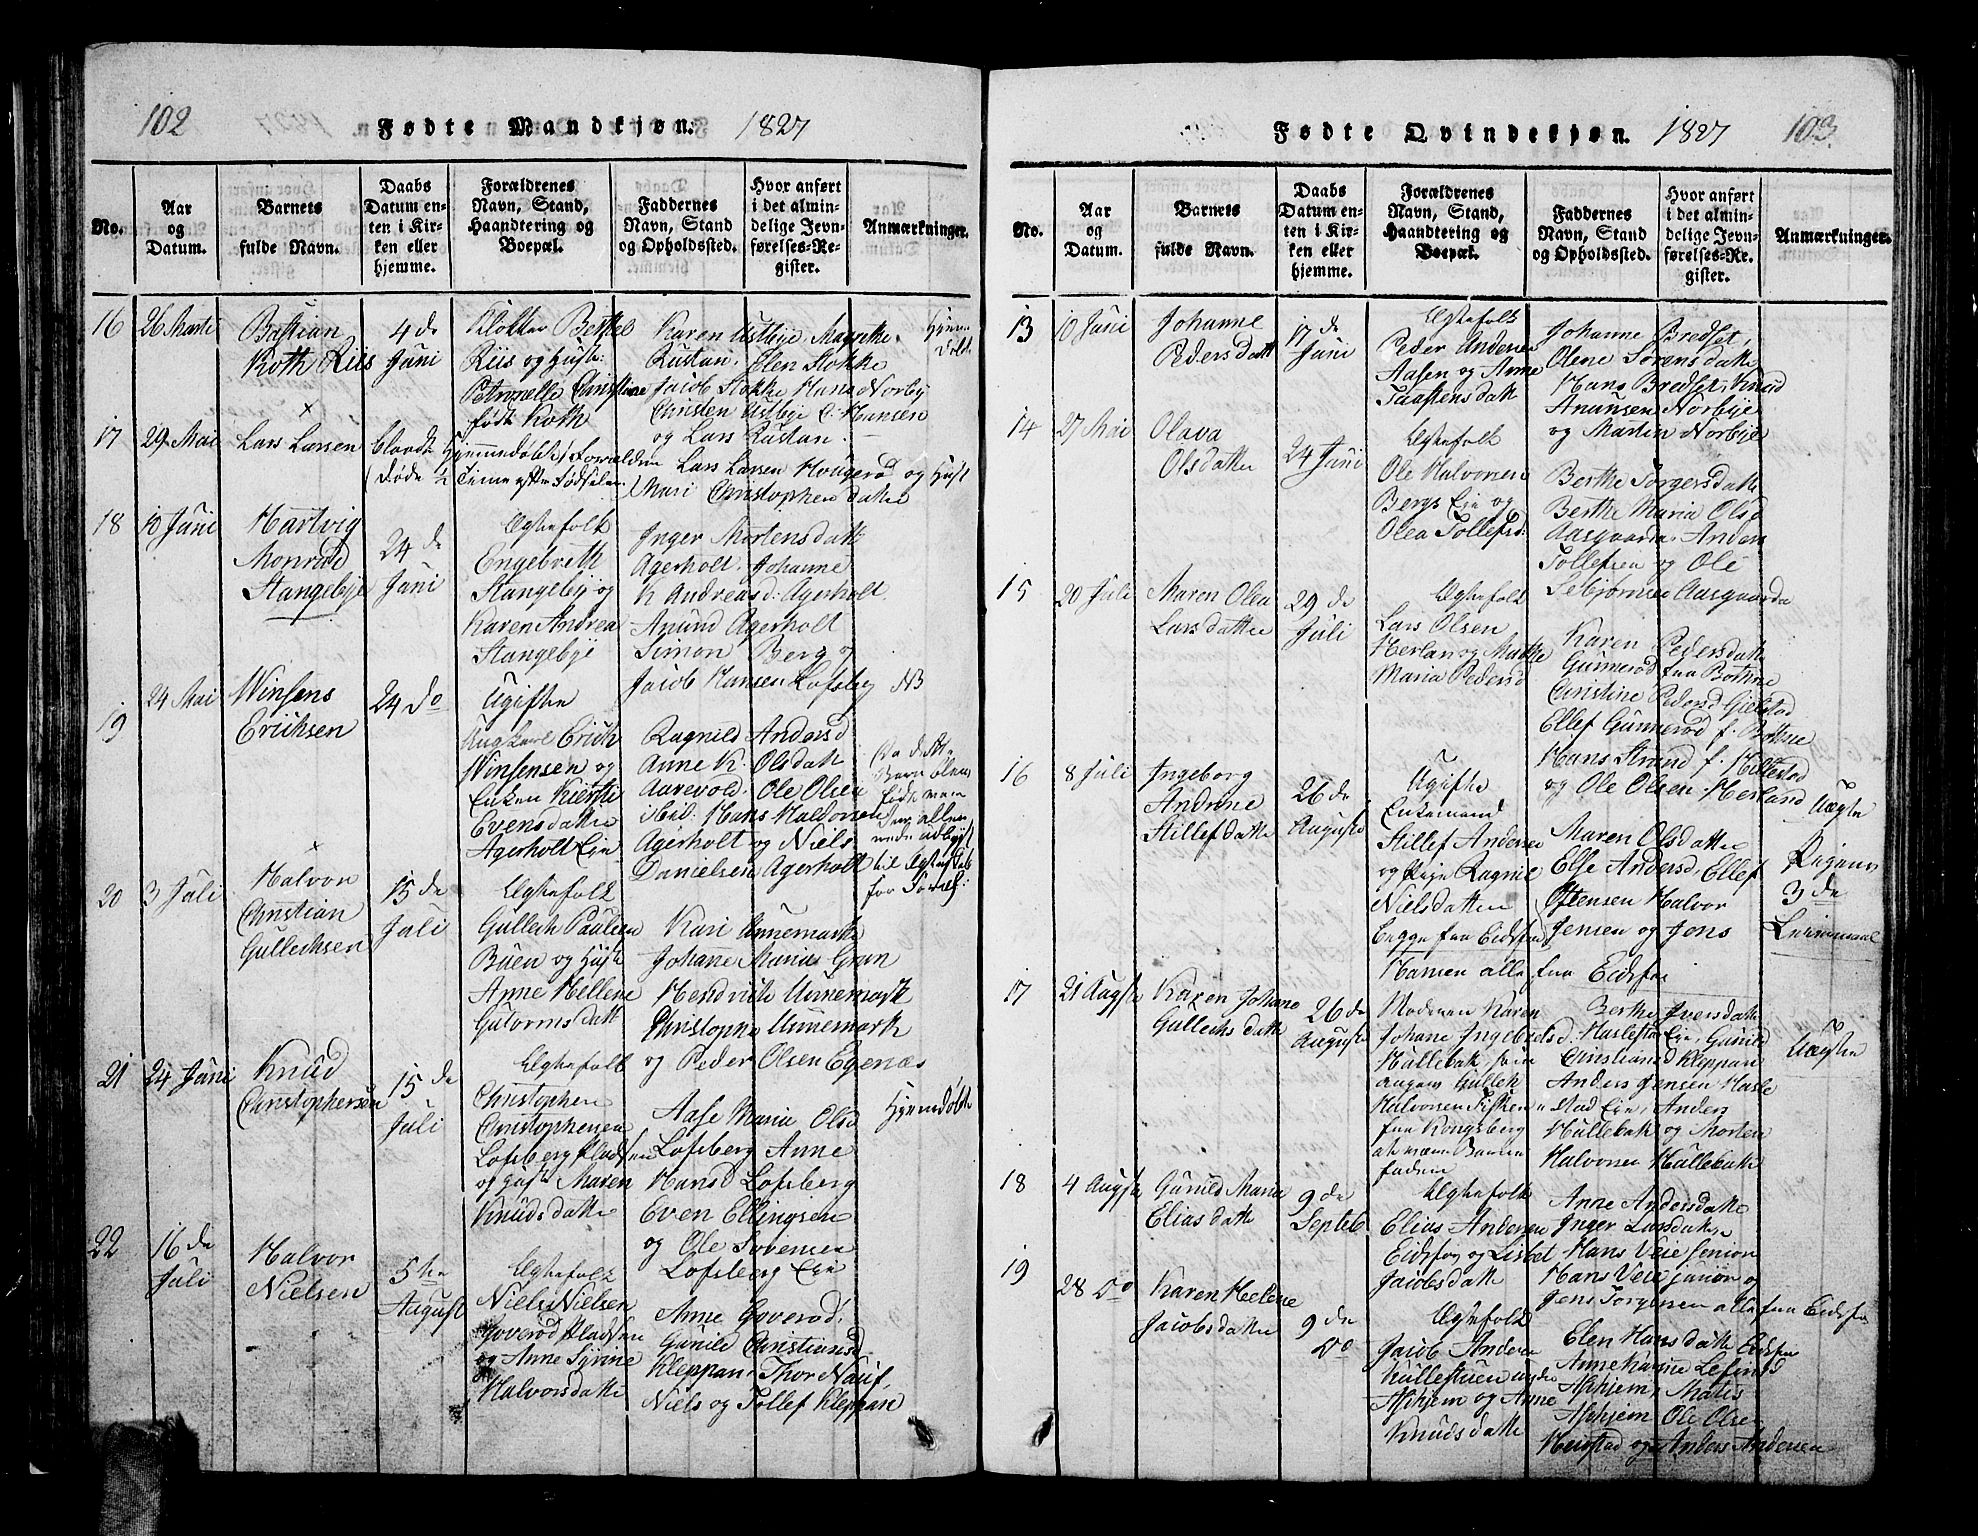 102
Fødte Mandkjøn. 1827
No.
Aar
og
Datum.
Barnets
fulde Navn.
Daabs
Datum en-
ten i Kir-
ken eller
hjemme.
Forældrenes
Navn, Stand,
Haandtering og
Boepæl.
Faddernes
Navn, Stand
og Opholdssted.
Hvor anført
i det almin-
delige Jevn-
førelses-Re-
gister.
Anmærkninger.
16
26 Marti
Bastian
Roth Riis
4 de
Juni
Klokker Berthel
Riis og Hust:
Petronelle Christine
født Roth
Karen Ustbye, Magrethe
Rustan, Elen Stokke
Jacob Stokke Hans Norby
Christen Ustbye C. Hansen
og Lars Rustan.
Hjemme
døbt
17
29 Mai
Lars Larsen
Hjemmedøbt
døde ½ Time efter Fødselen
Forældre
Lars Larsen Hougerød og Hust
Mari Christophersdatter
18
10 Juni
Hartvig
Monrad
Stangebye
24 de
Juni
Ægtefolk
Engebreth
Stangeby og
Karen Andrea
Stangebye
Inger Mortensdatt
Agerholt. Johanne
K Andreasd: Agerholt.
Anund Agerholt
Simon Berg og
Jacob Hansen Lofsberg
19
24 Mai
Winsens
Erichsen
24 Do
Ugifte
Ungkarl Erich
Winsensen og
Enken Kiersti
Evensdatter
Agerholt Eje
Ragnild Andersd
Anne K. Olsdatt
Aarevold. Ole Olsen
ibid: Hans Halvorsen
Agerholt og Niels
Danielsen Agerholt
NB
20
3 Juli
Halvor
Christian
Gullechsen
15 de
Juli
Ægtefolk
Gullech Paulsen
Buen og Hust
Anne Hellene
Gulormsdatt
Kari Unnemark
Johane Marius Gran
Hendrich Unnemark
Christopher Unnemark
og Peder Olsen Egenæs
21
24 Juni
Knud
Christophersen
15 de
Juli
Ægtefolk
Christopher
Christophersen
Lofsberg Pladsen
og Hust Maren
Knudsdatter
Aase Maria Olsd
Lofsberg Anne
Hansd Lofsberg
Even Ellingsen
og Ole Sørensen
Lofsberg Eje
Hjemdøbt
22
16 de
Juli
Halvor
Nielsen
5 te
August
Ægtefolk
Niels Nielsen
Goverød Pladsen
og Anne Sirine
Halvorsdatter
Anne Goverød,
Gunild Christiansd
Kleppan, Thor Nauf,
Niels og Tollef Kleppan
Fødte Qvindekjøn. 1827
103.
No.
Aar
og
Datum.
Barnets
fulde Navn.
Daabs
Datum en-
ten i Kir-
ken eller
hjemme.
Forældrenes
Navn, Stand,
Haandtering og
Boepæl.
Faddernes
Navn, Stand
og Opholdssted.
Hvor anført
i det almin-
delige Jevn-
førelses-Re-
gister.
Anmærkninger.
13
10 Juni
Johanne
Pedersdatt
17 de
Juni
Ægtefolk
Peder Andersen
Aasen og Anne
Johanne Bredset,
Olene Sørensdatt
Hans Bredset, Knud
Anunsen Norbye
og Martin Norbye
14
27 Mai
Olava
Olsdatter
24 Juni
Ægtefolk
Ole Halvorsen
Bergs Eje og
Olea Tollefsd:
Berthe Torgersdatt
Berthe Maria Olsd
Aasgaarden, Anders
Tollefsen og Ole
Sebjørnsen Aasgaarden
15
20 Juli
Maren Olea
Larsdatter
29 de
Juli
Ægtefolk
Lars Olsen
Herland og Marthe
Maria Pedersd
Karen Pedersdatt
Gunnerød fra Bothne
Christine Pedersd Gielstad
Ellef Gunnerød f. Bothne
Hans Strand f. Hillestad
og Ole Olsen Herland
16
8 Juli
Ingeborg
Andrine
Stillefdatter
26 de
Augusti
Ugifte
Enkemand
Stillef Andersen
og Pige Ragnil
Nielsdatter
begge fra Eidsfos
Maren Olsdatter
Else Andersd, Ellef
Oftensen Halvor
Jensen og Jens
Hansen alle fra Eidsfos
Uægte
Pigens
3 de
Leiermaal
17
21 Augste
Karen Johane
Gullechsdatt
26 de
Auguste
Moderen Karen
Johane Ingebretsd.
Hullebak
Gullech
Halvorsen Fisken
fra Kongsberg
at være Barnefadern
Berthe Iversdatt
Haslestad Eje, Gunild
Christiansd Kleppan
Anders Jensen Hasle-
stad Eje, Anders
Hullebak og Morten
Halvorsen Hullebak
Uægte
18
4 Augste
Gunild Maria
Eliasdatt
9 de
Septeb
Ægtefolk
Elias Andersen
Eidsfos og Lisbet
Jacobsdatter
Anne Andersdatter
Inger Larsdatter
Hans Veie senior
Hans Veie junior og
Jens Torgersen alle fra Eidsfos
19
28 Do
Karen Helene
Jacobsdatter
9 de
Do
Ægtefolk
Jacob Andersen
Kullestuen under
Aphjem og Anne
Knudsdatter
Elen Hansdatt Eidsfos
Anne Karine
Aphjem, Mates
Aphjem Ole Olsen
og Anders Andersen